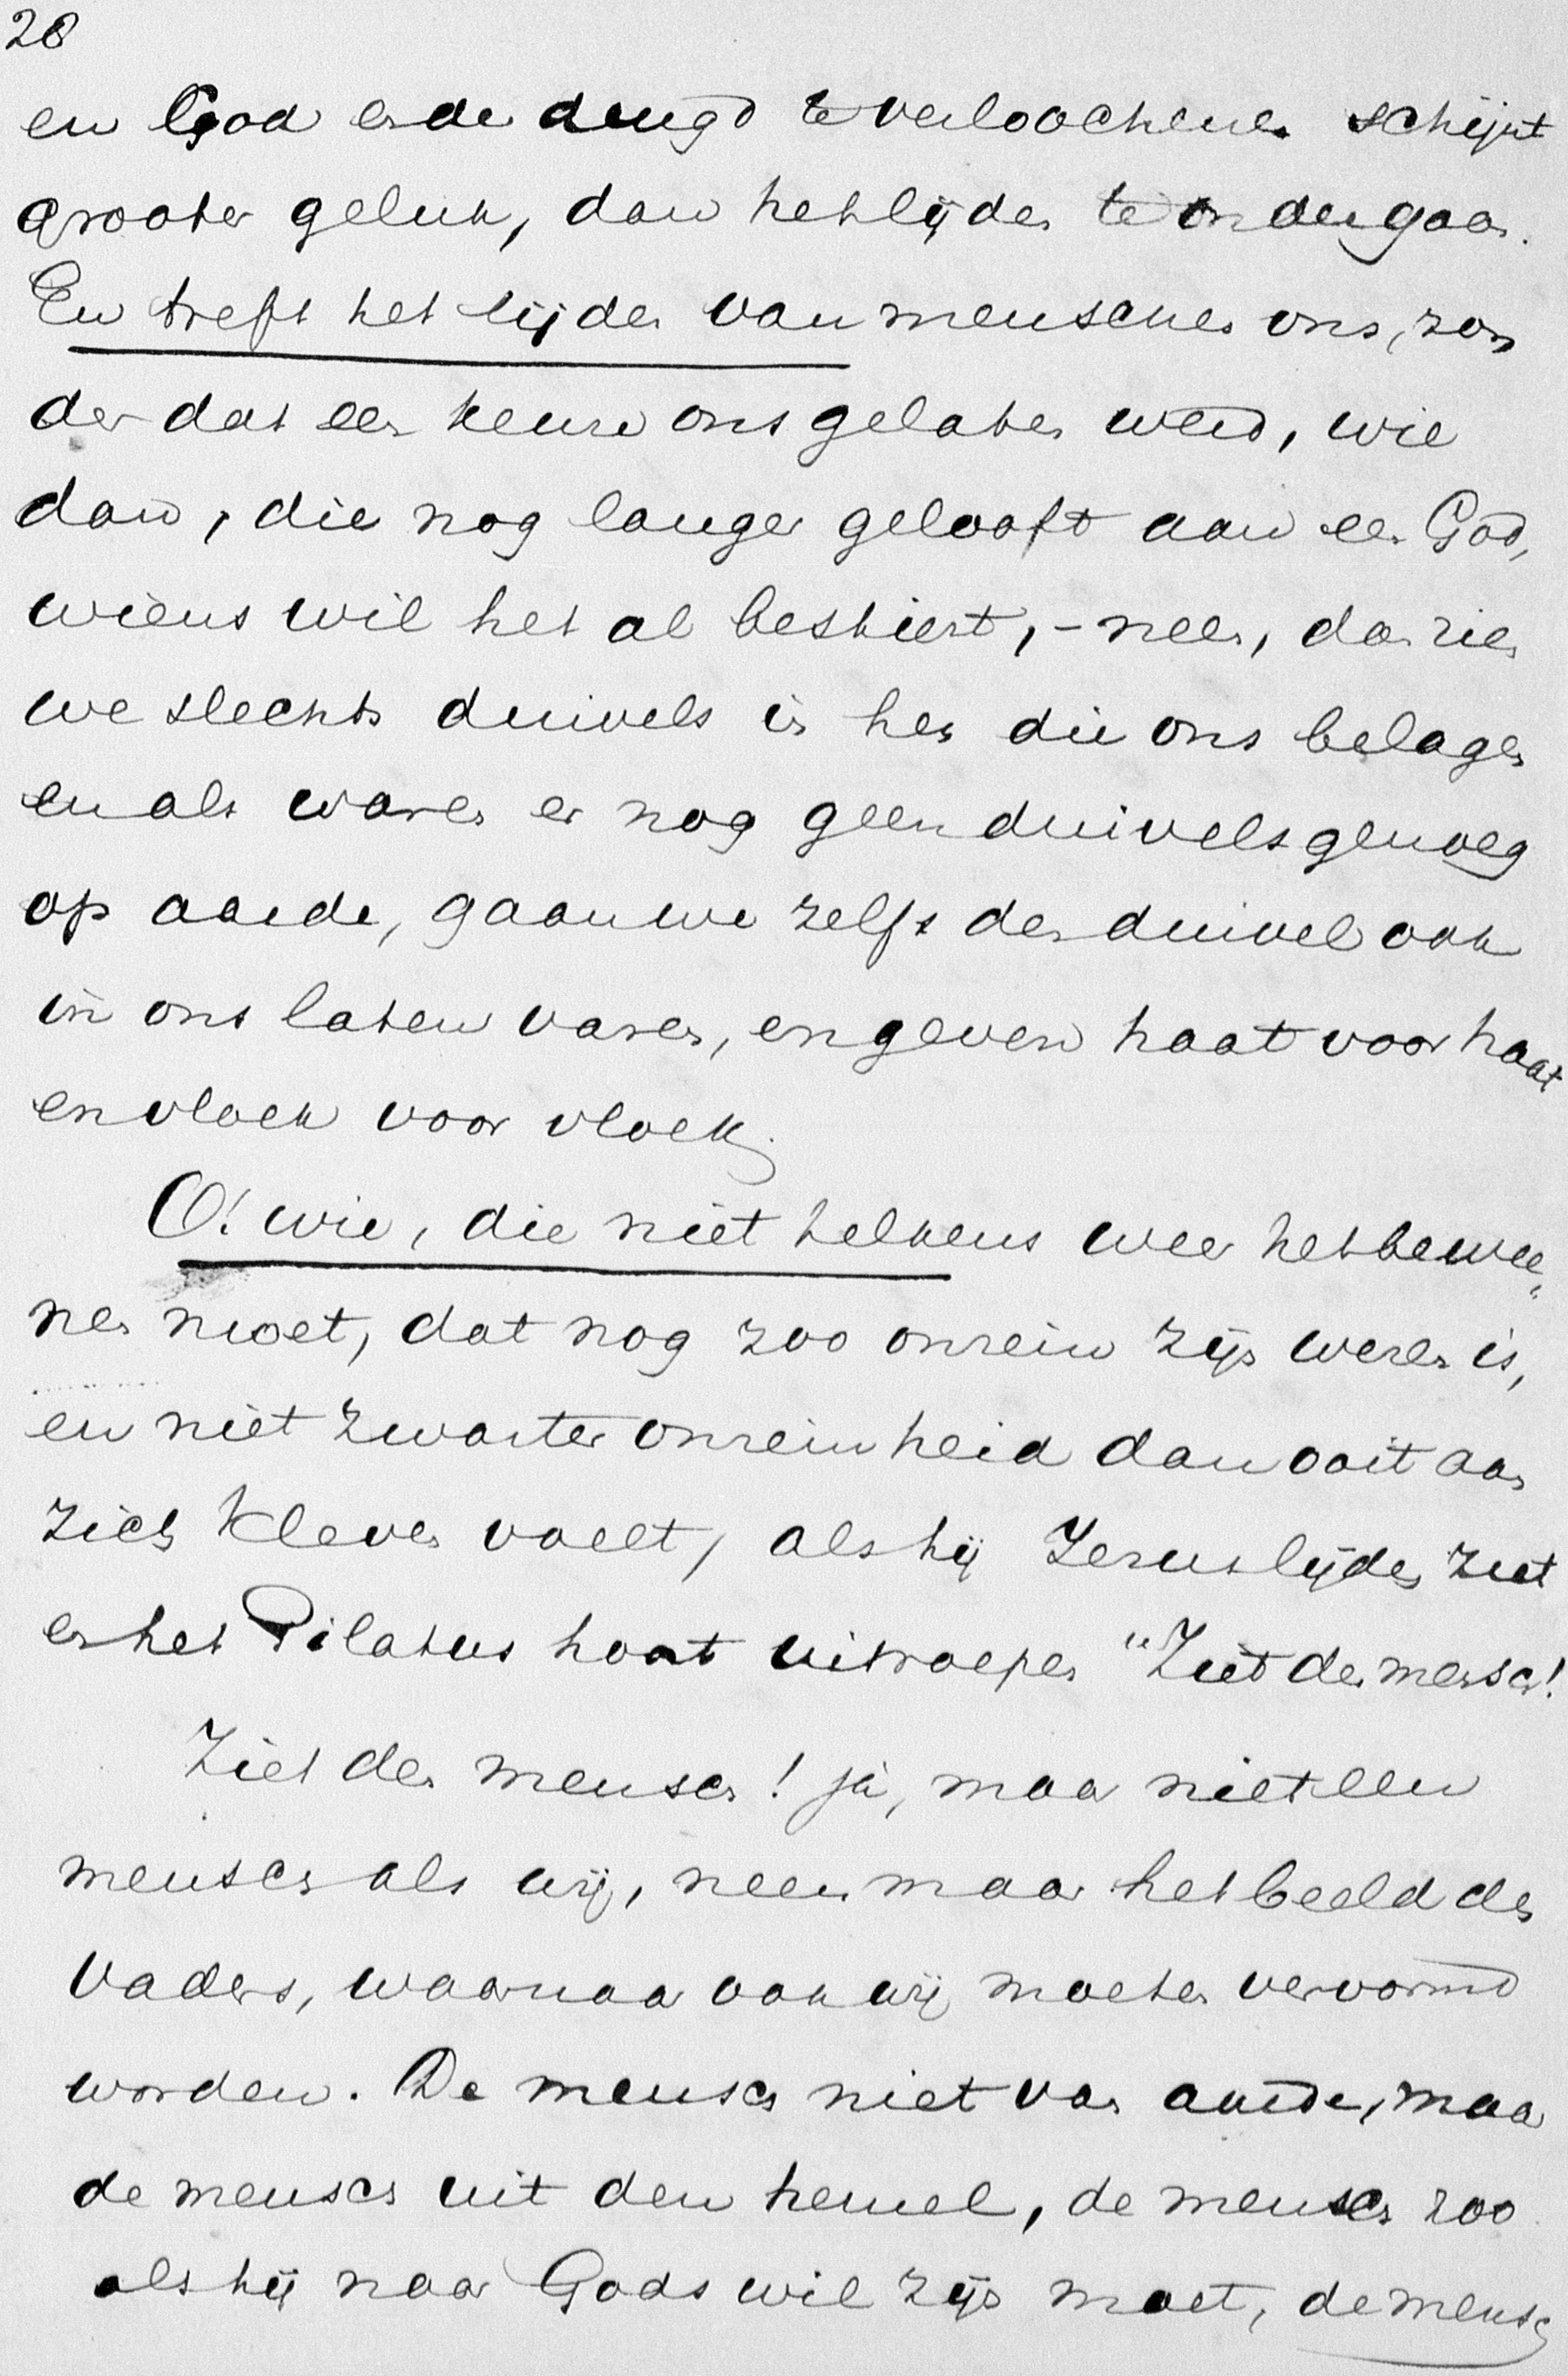 28
en God en de deugd te verloochenen schijnt
grooter geluk, dan het lijden te ondergaan.
En treft het lijden van menschen ons, zon
der dat een keuze ons gelaten werd, wie
dan, die nog langer gelooft aan een God,
wiens wil het al bestiert, - neen, dan zien
we slechts duivels in hen die ons belagen
en als waren er nog geen duivels genoeg
op aarde, gaan we zelfs den duivel ook
in ons laten varen, en geven haat voor haat
en vloek voor vloek.
O! wie, die niet telkens weer het bewee„
nen moet, dat nog zoo onrein zijn wezen is,
en niet zwarter onreinheid dan ooit aan
zich kleven voelt, als hij Jezus lijden ziet
en het Pilatus hoort uitroepen "Ziet den mensch!
Ziet den mensch! ja, maar niet een
mensch als wij, neen maar het beeld des
Vaders, waarnaar ook wij moeten vervormd
worden. De mensch niet van aarde, maar
de mensch uit den hemel, de mensch zoo
als hij naar Gods wil zijn moet, de mensch